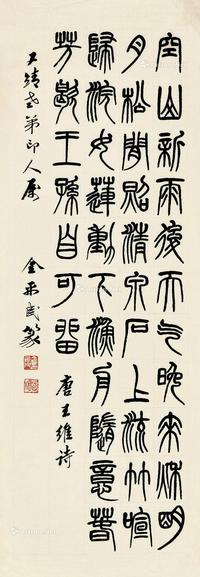 空山新雨後天气晚來秋明
月松間照清泉石上流竹喧
歸浣女蓮動下漁舟隨意春
芳歇王孫自可留
唐王維詩
靖老弟印人屬
金禹民篆